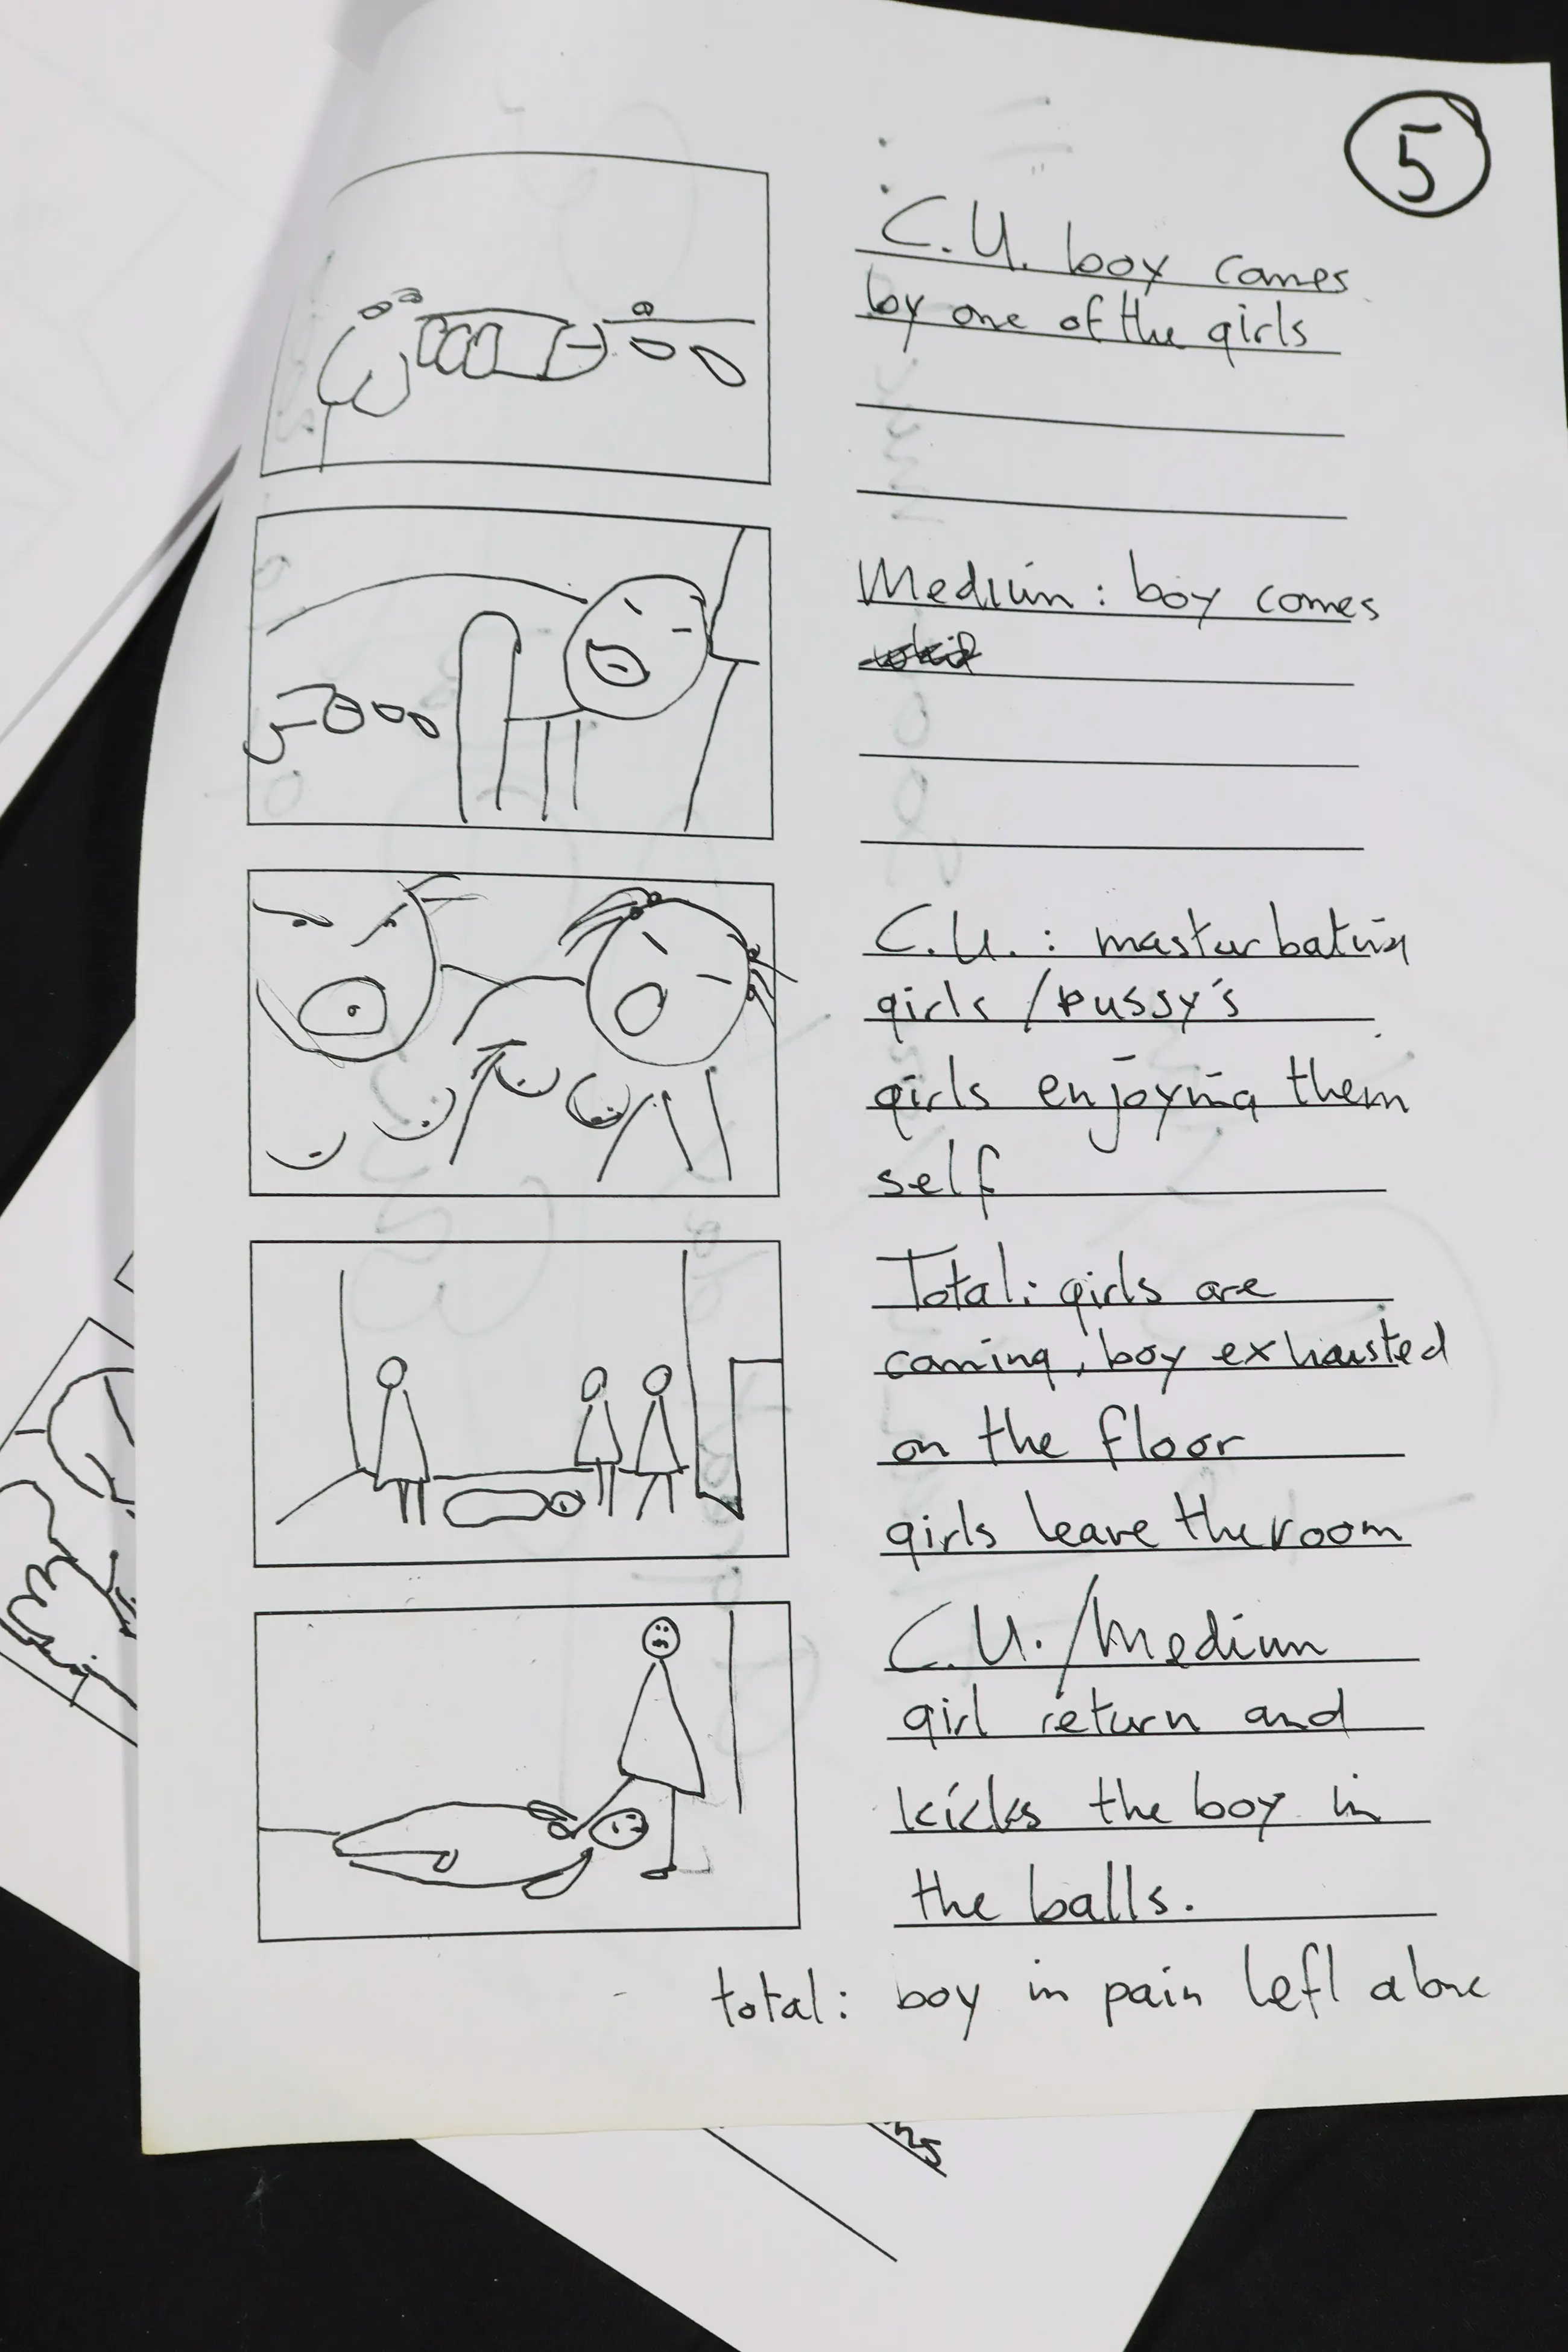 5
C.U. boy comes
by one of the girls
Medium: boy comes
C.U.: masturbating
girls / pussy's
girls enjoying them
self
Total: girls are
coming, boy exhausted
on the floor
girls leave the room
C.U./Medium
girl return and
kicks the boy in
the balls.
total: boy in pain left alone